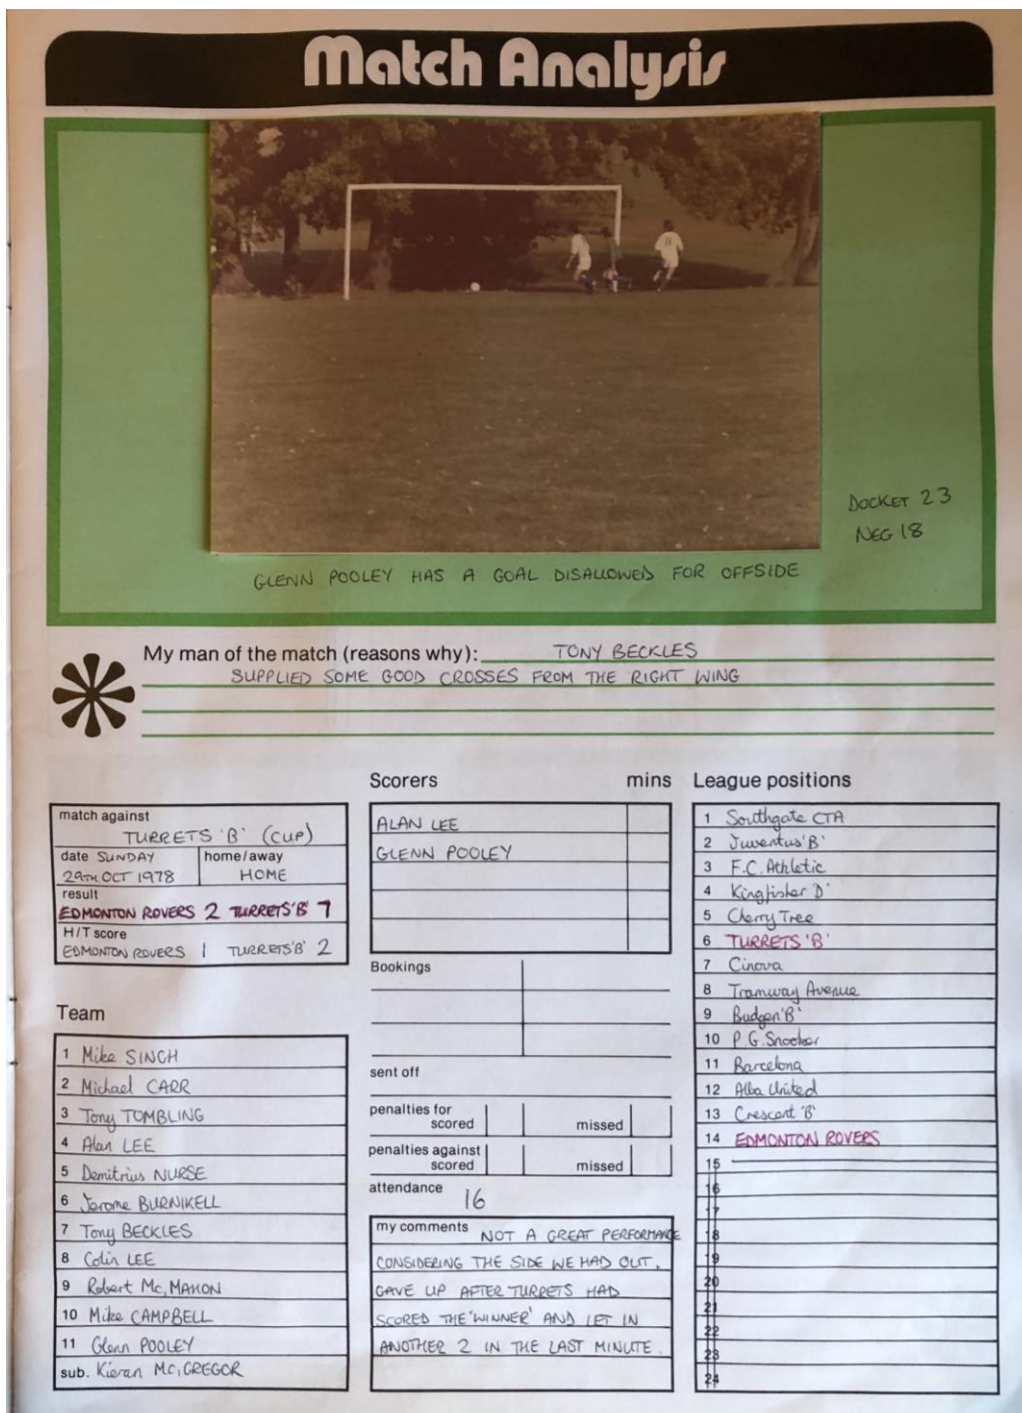 Match Analysis
11
DOCKET 23
NEG 18
GLENN POOLEY HAS A GOAL DISALLOWED FOR OFFSIDE
My man of the match (reasons why): TONY BECKLES
SUPPLIED SOME GOOD CROSSES FROM THE RIGHT WING
match against
TURRETS 'B' (CUP)
date SUNDAY
29TH OCT 1978
home/away
HOME
result
EDMONTON ROVERS 2 TURRETS 'B' 7
H/T score
EDMONTON ROVERS 1 TURRETS 'B' 2
Team
1 Mike SINGH
2 Michael CARR
3 Tony TOMBLING
4 Alan LEE
5 Demitrius NURSE
6 Jerome BURNIKELL
7 Tony BECKLES
8 Colin LEE
9 Robert Mc.MAHON
10 Mike CAMPBELL
11 Glenn POOLEY
sub. Kieran Mc.GREGOR
Scorers mins
ALAN LEE
GLENN POOLEY
Bookings
sent off
penalties for
scored missed
penalties against
scored missed
attendance 16
my comments NOT A GREAT PERFORMANCE
CONSIDERING THE SIDE WE HAD OUT.
GAVE UP AFTER TURRETS HAD
SCORED THE 'WINNER' AND LET IN
ANOTHER 2 IN THE LAST MINUTE.
League positions
1 Southgate CTA
2 Juventus 'B'
3 F.C. Athletic
4 Kingfisher 'D'
5 Cherry Tree
6 TURRETS 'B'
7 Cinova
8 Tramway Avenue
9 Budgen 'B'
10 P.G. Snooker
11 Barcelona
12 Alba United
13 Crescent 'B'
14 EDMONTON ROVERS
15
16
17
18
19
20
21
22
23
24